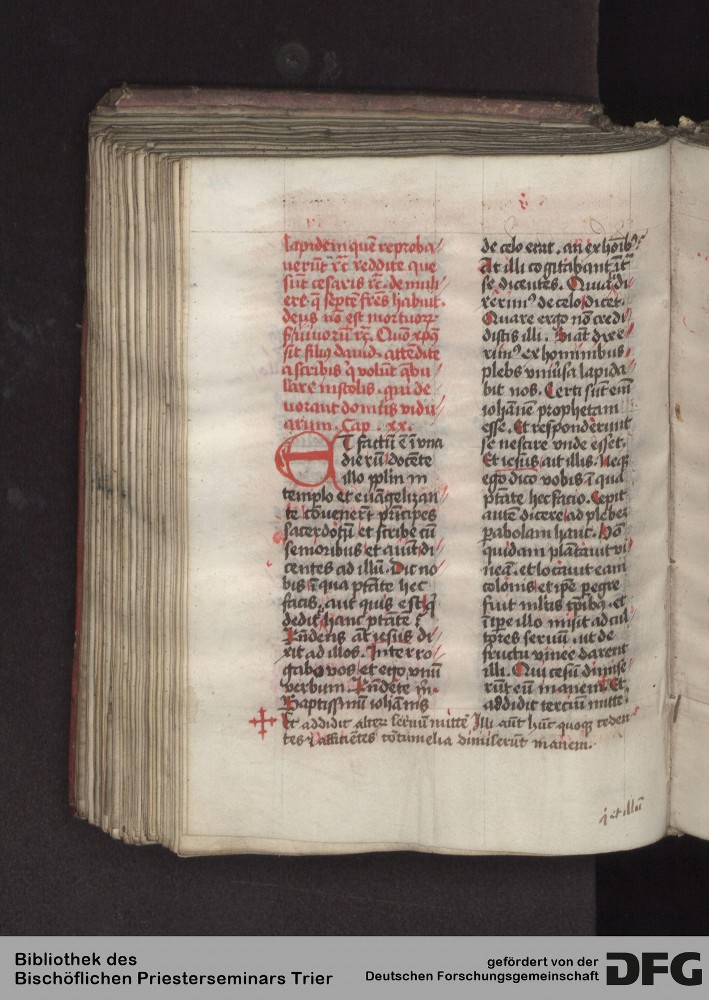 lapidem quē reproba
uerūt rc̄ reddite que
sūt cesaris rc̄. de muli
ere q̄ septē frēs habuit.
deus nō est mortuoꝝ
s̄ viuorū rc̄. Quō xp̄s
sit filius dauid. attēdite
a scribis q̄ volūt ābu
lare in stolis. qui de
uorant domus vidu
arum. Cap. xx.
ET factū ē ī vna
dierū docēte
illo ppl̄m in
templo et euāgelizan
te cōuenerūt prīcipes
sacerdotū et scribe cū
senioribus et aiūt di
centes ad illū. Dic no
bis ī qua ptāte hec
facis. aut quis est q̄
dedit t̄ hanc ptātē ?
Rn̄dens at̄ iesus di
xit ad illos. Interro
gabo vos et ego vnū
verbum. Rn̄dete m̄.
Baptismū iohānis
de celo erat. an ex hoīb⁹ ?
At illi cogitabant īt̄
se dicentes. Quia si di
xerim⁹ de celo dicet.
Quare ergo nō credi
distis illi. Si āt dixe
rim⁹ ex hominibus
plebs vniūsa lapida
bit nos. Certi sūt eīm
iohānē prophetam
esse. Et responderunt
se nescire vnde esset.
Et iesus ait illis. Neq̄
ego dico vobis ī qua
ptāte hec facio. Cepit
autē dicere ad plebē
pabolam hanc. Hō
quidam plātauit vi
neā. et locauit eam
colonis et ip̄e pegre
fuit ml̄tis tp̄ibꝫ. et
ī tp̄e illo misit ad cul
tores seruū. ut de
fructu vinee darent
illi. Qui cesū dimise
rūt eū inanem. Et
addidit tercium mitte
Et addidit alterꝝ seruū mittē Illi aūt hūc quoqꝫ ceden
tes ⁊ afficiētes cōtumelia dimiserūt inanem.
⁊ et illū
Bibliothek des
Bischöflichen Priesterseminars Trier
gefördert von der
Deutschen Forschungsgemeinschaft
DFG